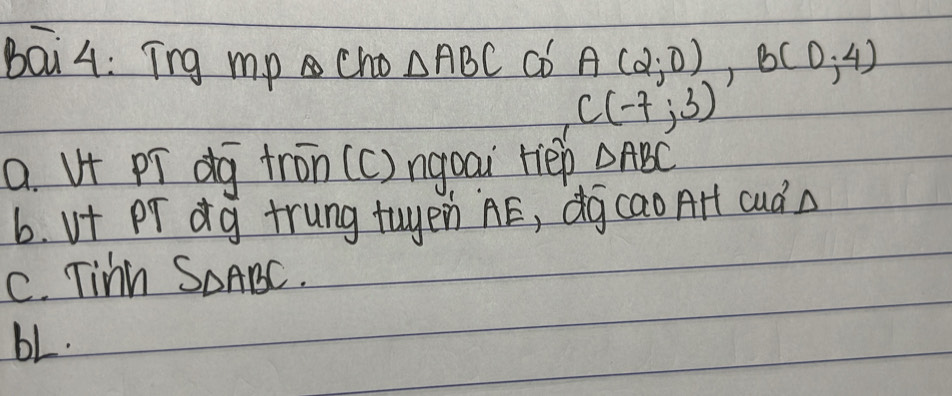 Bài 4: Trg mp cho ΔABC có A(2;0), B(0;4)
C(-7;3)
a. Vt PT đg tròn (C) ngoại tiếp ΔABC
b. Vt PT đg trung tuyến AE, đg cao AH của Δ
c. Tính SΔABC.
bL.